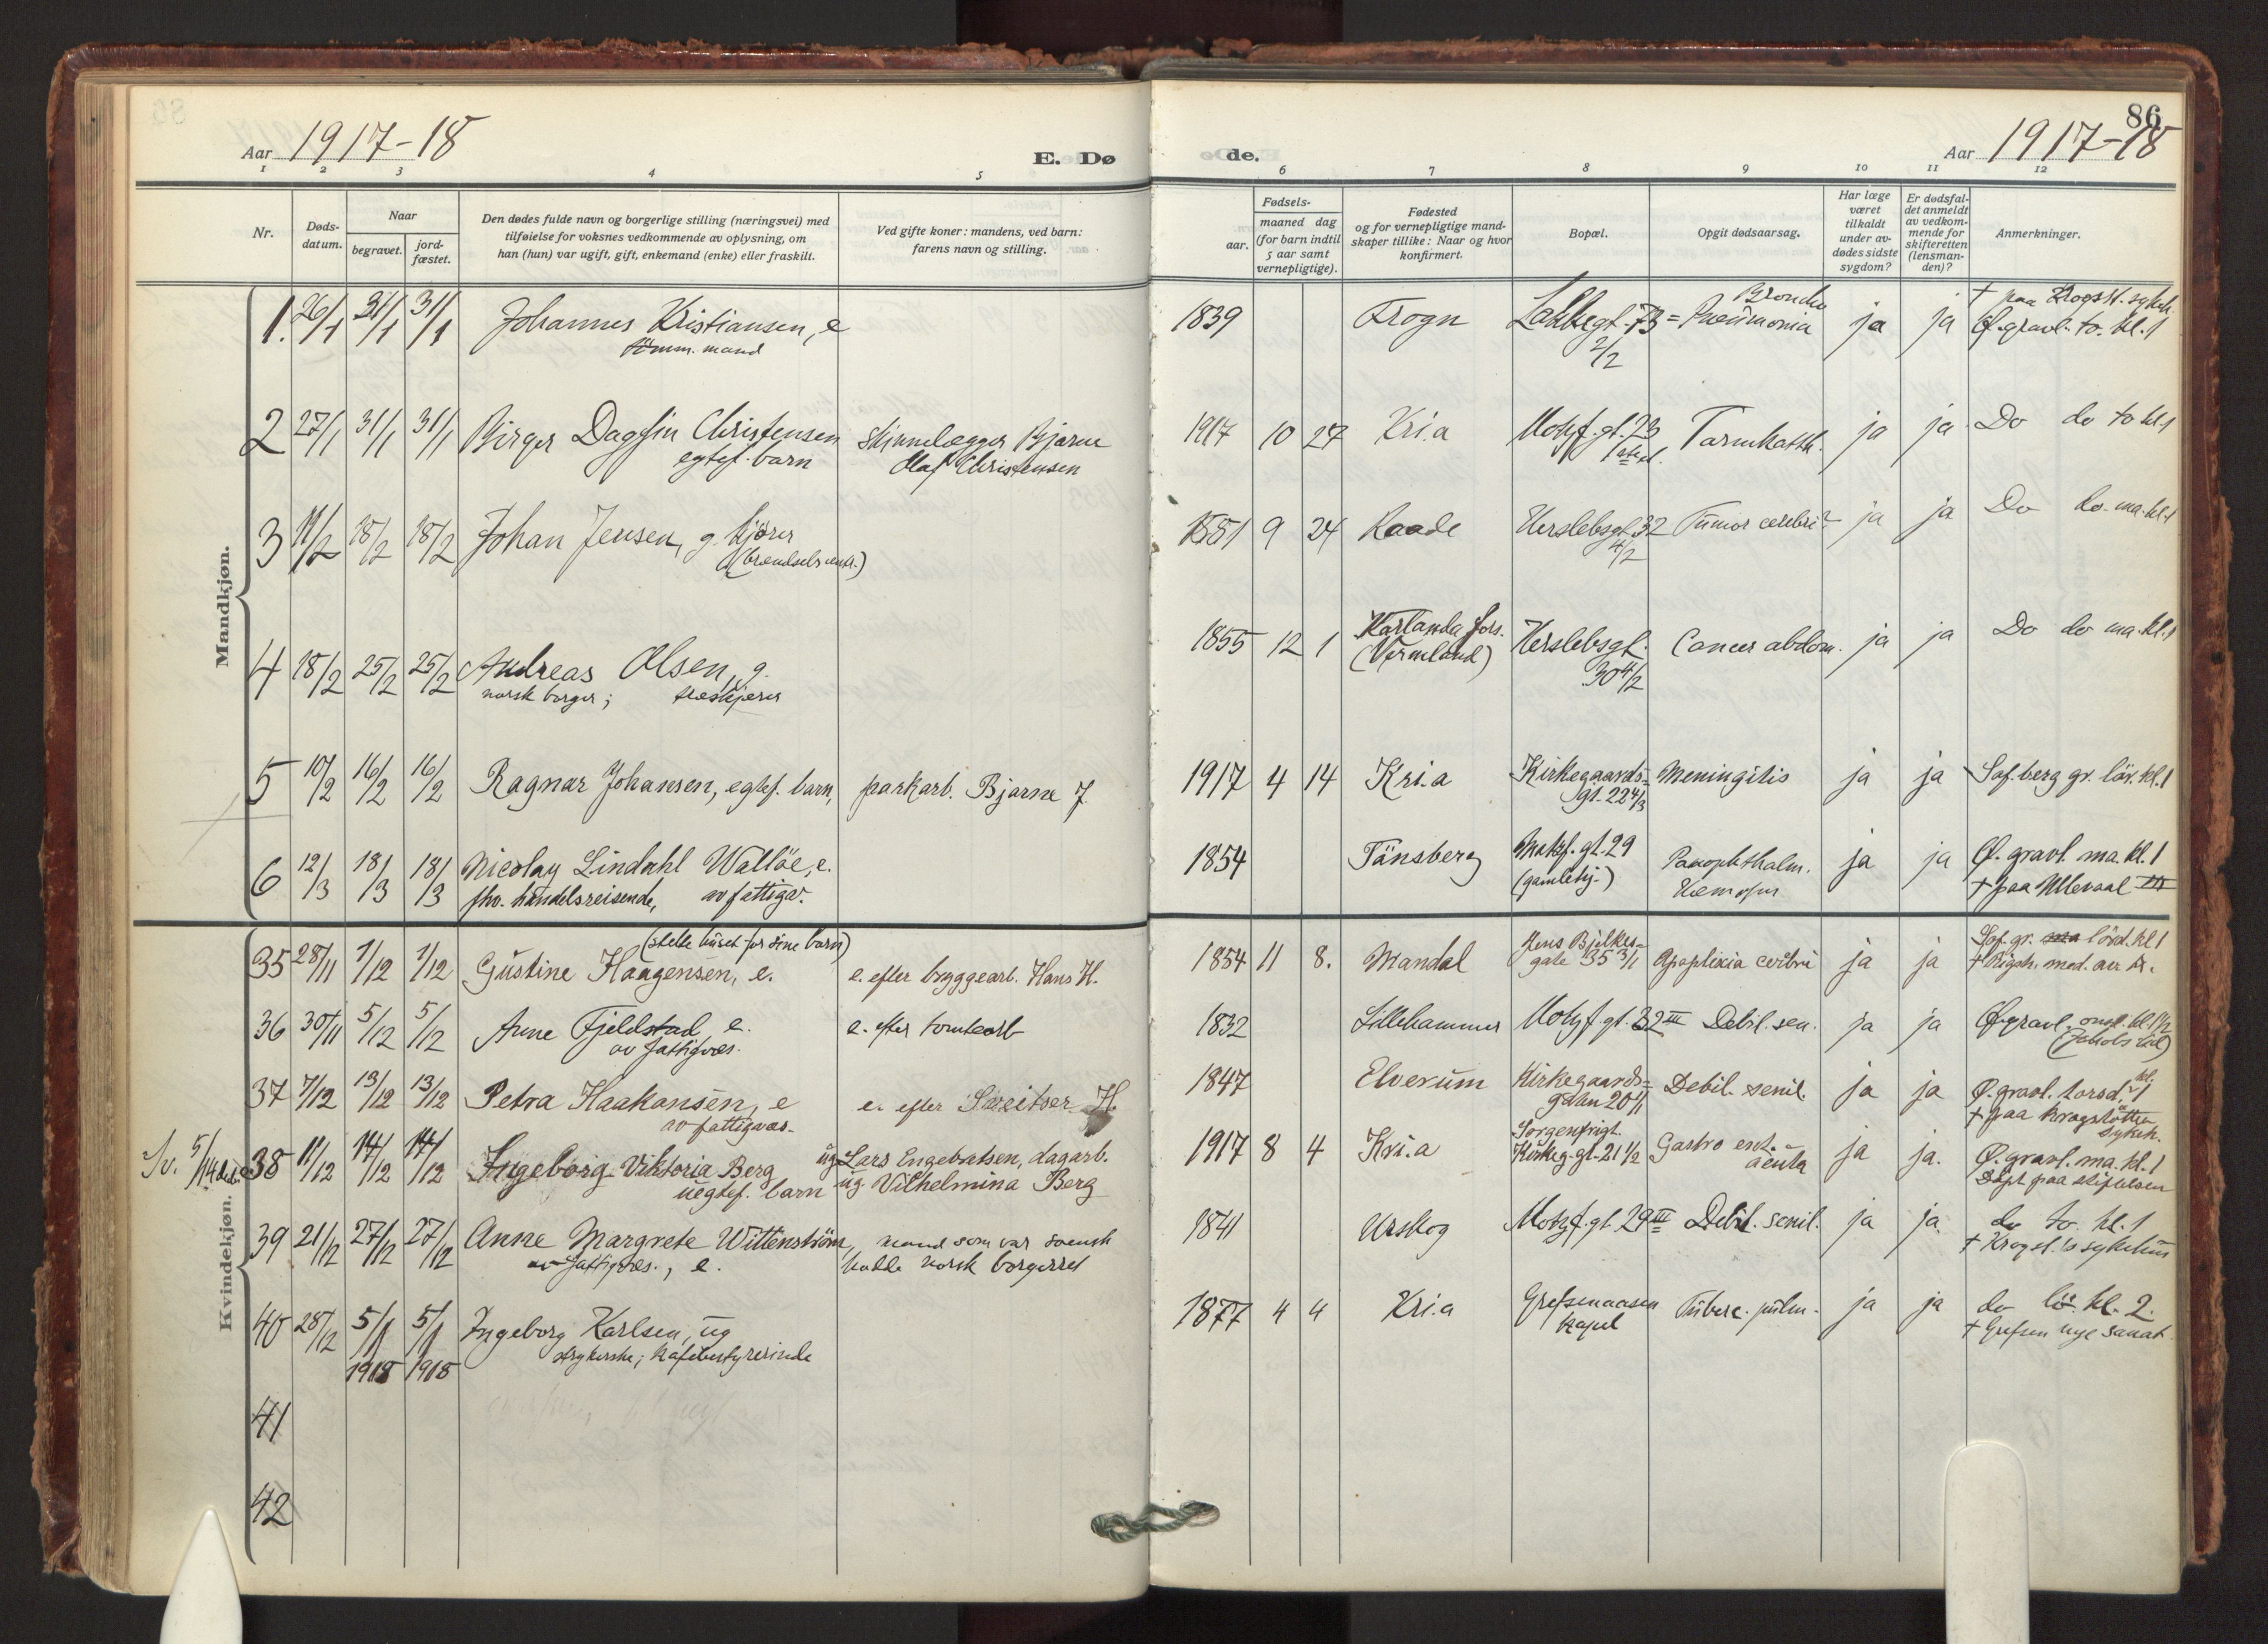 Aar 1917-18
E. Dø
1 2 3 4 5
Nr.
Døds-
datum.
Naar
begravet.
jord-
fæstet.
Den dødes fulde navn og borgerlige stilling (næringsvei) med
tilføielse for voksnes vedkommende av oplysning, om
han (hun) var ugift, gift, enkemand (enke) eller fraskilt.
Ved gifte koner: mandens, ved barn:
farens navn og stilling.
de.
86
Aar 1917-18
6 7 8 9 10 11 12
Fødsels-
aar.
maaned dag
(for barn indtil
5 aar samt
vernepligtige).
Fødested
og for vernepligtige mand-
skaper tillike: Naar og hvor
konfirmert.
Bopæl.
Opgit dødsaarsag.
Har læge
været
tilkaldt
under av-
dødes sidste
sygdom?
Er dødsfal-
det anmeldt
av vedkom-
mende for
skifteretten
(lensman-
den)?
Anmerkninger.
Mandkjøn.
1. 26/1 31/1 31/1 Johannes Kristiansen, e
tömm. mand
1839 Frogn Lakkegt. 73 = Broncho
2/2 Pneumonia ja ja † paa Krogst. sykeh.
Ø. gravl. to. kl. 1
2 27/1 31/1 31/1 Birger Dagfin Christensen
egtef. barn
skinnelægger Bjarne
Olaf Christensen
1917 10 27 Kri.a Motzf. gt. 23
Tarmkatarrh. ja ja Do do to kl. 1
3 11/2 18/2 18/2 Johan Jensen, g. kjörer
1851 9 24 Raade Herslebsgt. 32
4/2
Tumor cerebri? ja ja Do do. ma. kl. 1
4 18/2 25/2 25/2 Andreas Olsen, g.
norsk borger; træskjærer
1855 12 1 Karlanda fors.
(Vermland)
Herslebsgt.
30 4/2
Cancer abdom. ja ja Do do ma. kl. 1
5 10/2 16/2 16/2 Ragnar Johansen, egtef. barn, parkarb. Bjarne J.
1917 4 14 Kri.a Kirkegaards-
gt. 22 4/3
Meningitis ja ja Sof.berg gr. lör. kl. 1
6 12/3 18/3 18/3 Nicolay Lindahl Wallöe, e.
fhv. handelsreisende, av fattigv.
1854 Tönsberg Motzf. gt. 29
(gamlehj.)
Panophthalm.
ja ja Ø. gravl. ma. kl. 1
† paa Ullevaal III
Kvindekjøn.
35 28/11 1/12 1/12 (stelte huset for sine barn)
Gustine Haagensen, e. e. efter byggearb. Hans H.
1854 11 8. Mandal Jens Bjelkes-
gate 35 3/1
Apoplexia cerebri ja ja Sof. gr. ma lörd. kl 1
† Rigsh. med. avd. A.
36 30/11 5/12 5/12 Anne Fjeldstad e.
av fattigvæs.
e. efter tomtearb
1832 Lillehammer Motzf. gt. 32 III Debil. sen. ja ja Ø. gravl. onsd. kl. 1 1/2
37 7/12 13/12 13/12 Petra Haakonsen, e
av fattigvæs.
e. efter Sveitser H.
1847 Elverum Kirkegaards-
gatan 20 1/1
Debil. senil. ja ja Ø. gravl. torsd. kl. 1
† paa Krogstötten
sykeh.
38 11/12 14/12 14/12 Ingeborg Viktoria Berg
uegtef. barn
ug. Lars Engebretsen, dagarb.
ug. Vilhelmina Berg
1917 8 4 Kri.a Sorgenfrigt.
Kirkeg. gt. 21 1/2
Gastro ent.
acuta
ja ja. Ø. gravl. ma. kl. 1
döpt paa stiftelsen
39 21/12 27/12 27/12 Anne Margrete Wittenström,
av fattigvæs., e.
mand som var svensk
hadde norsk borgerret
1841 Urskog Motzf. gt. 29 III Debil. senil. ja ja. do to. kl. 1
† Krogst. s sykehus
40 28/12 5/1 5/1 Ingeborg Karlsen, ug
1918 1918 strykerske; kafébestyrerinde
1877 4 4 Kri.a Grefsenaasen
kapel
Tuberc. pulm. ja ja do lör. kl. 2.
† Grefsen nye sanat.
41
42